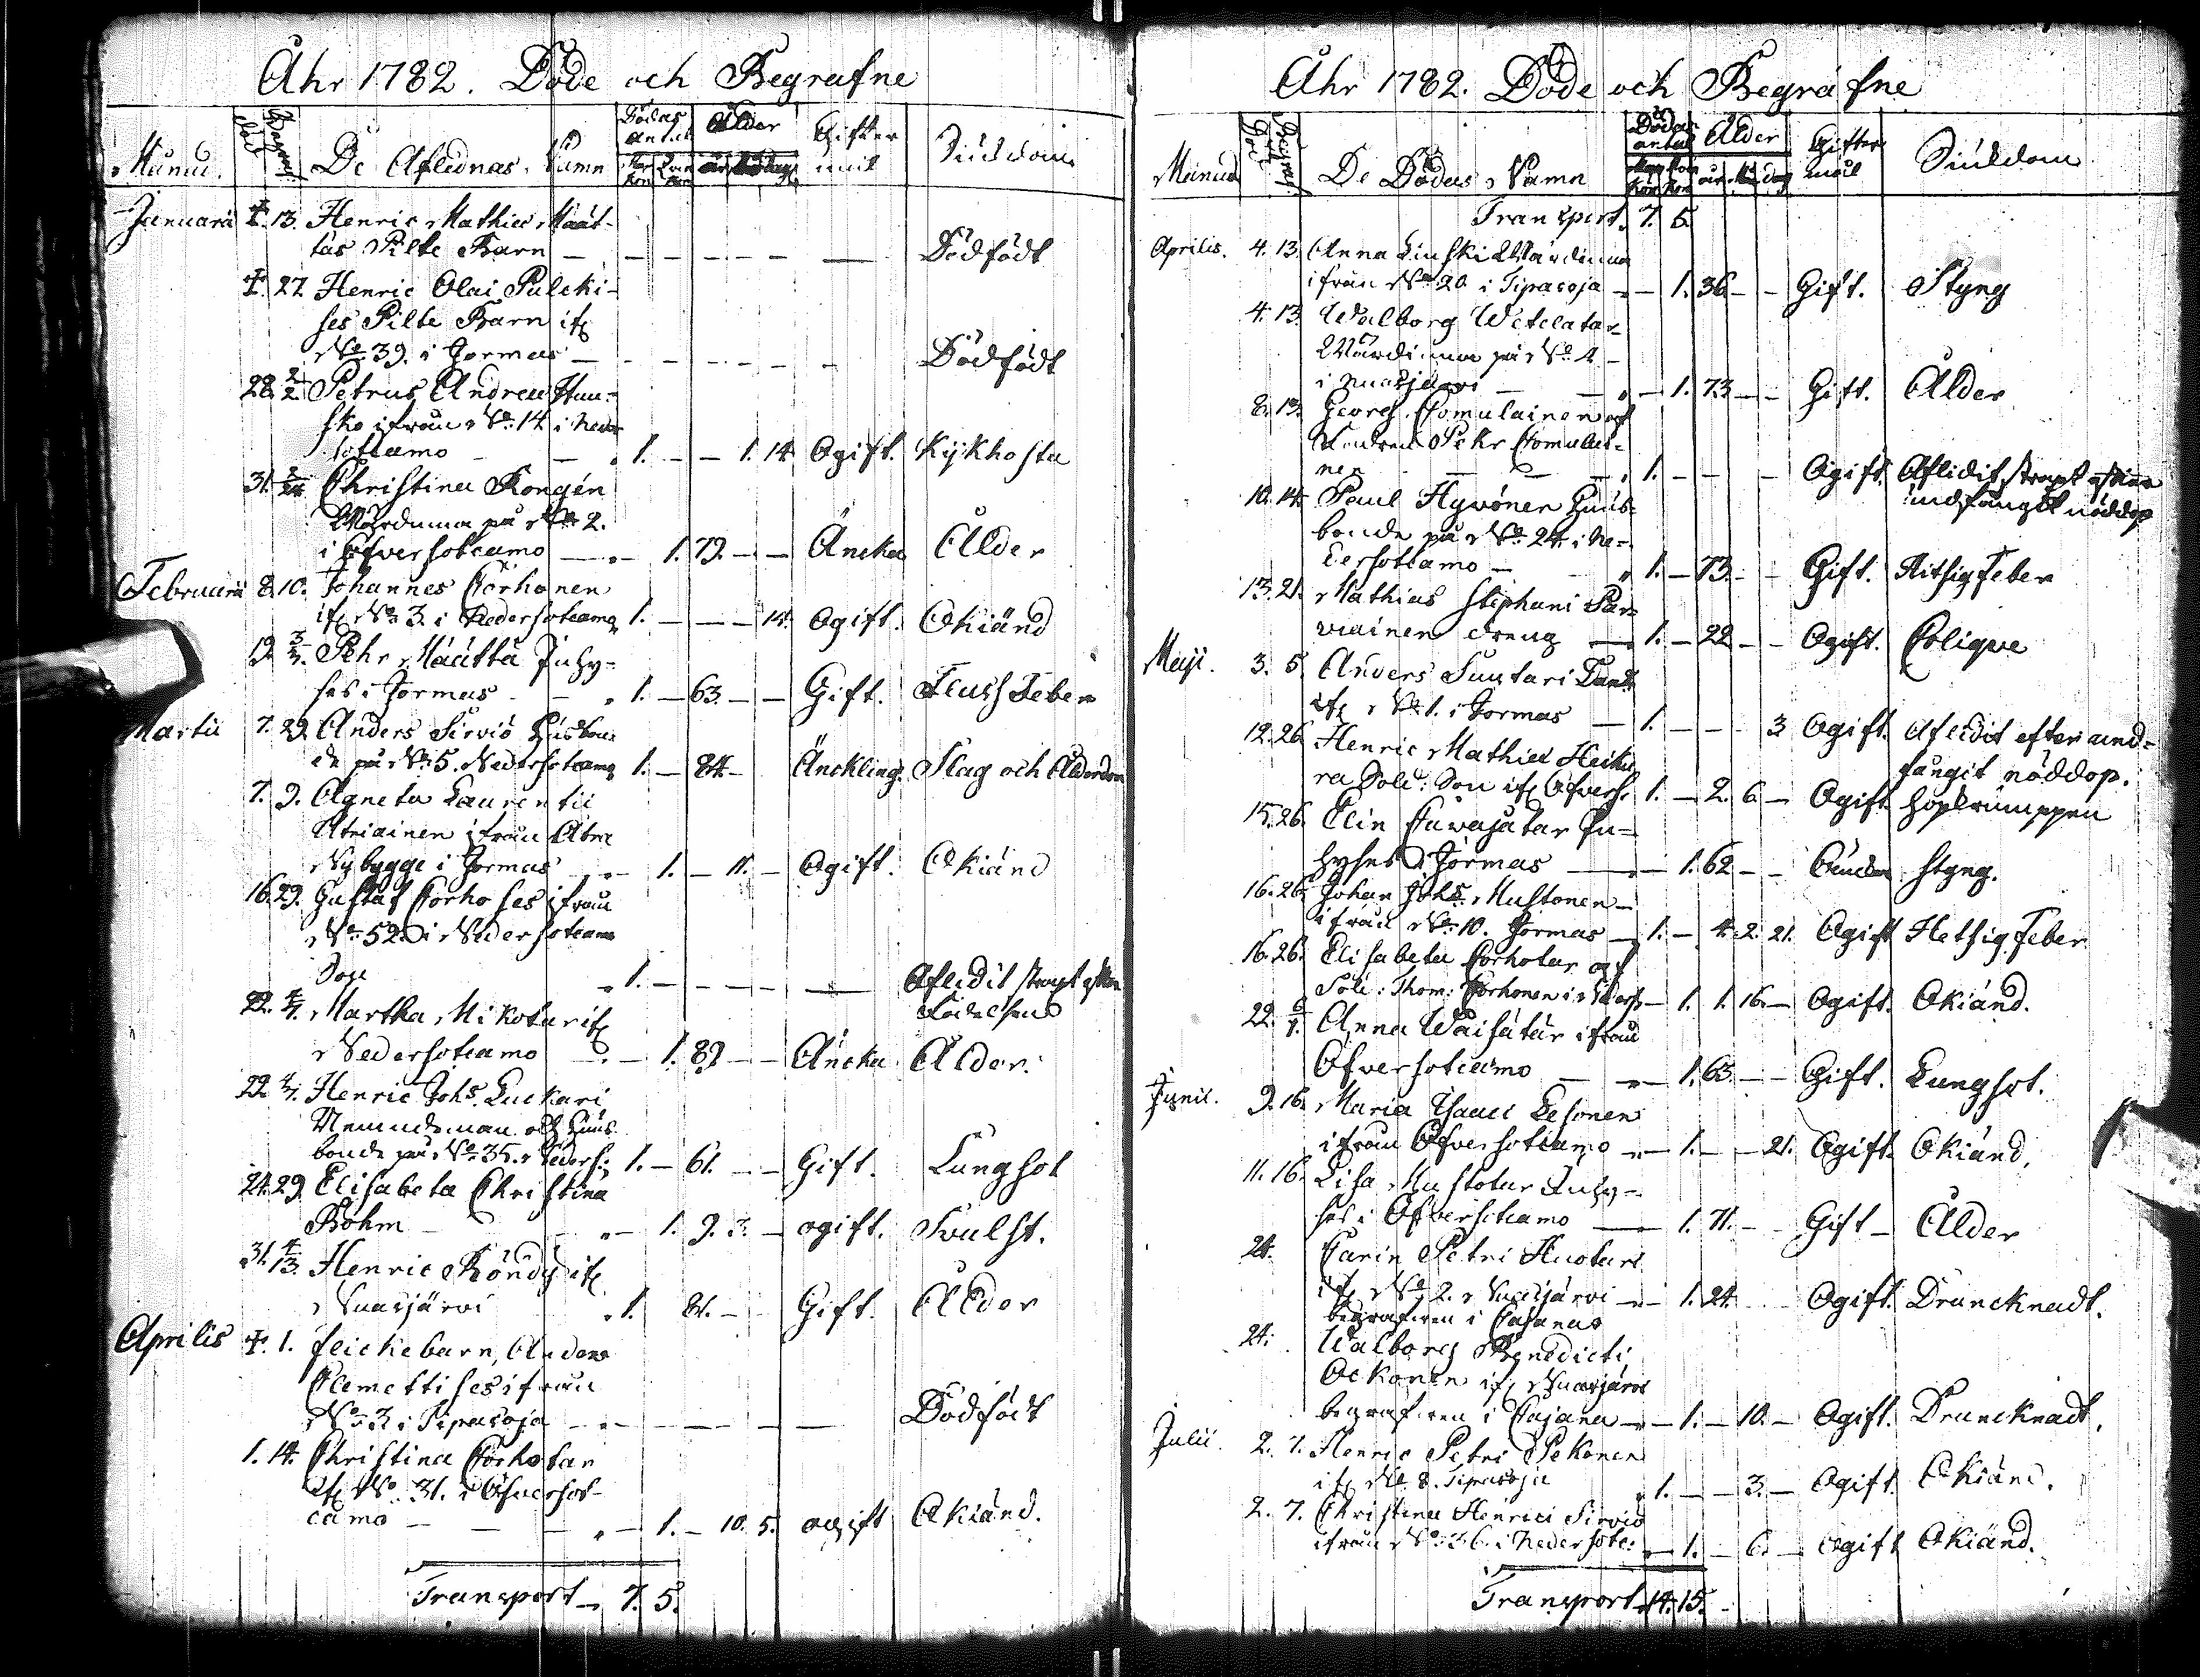 Åhr 1782. Döde och Begrafne
Månad. Död Begraf: De Aflednas Namn Dödas Antal Ålder Gifter mål Siukdom
Man kön Qvin kön år
Januarii +. 13. Henric Mathiæ Määt-
täs Pilte Barn — — — — — — — Dödfödt
+. 27. Henric Olai Pulcki-
ses Pilte Barn if:
No 39. i Jormas — — — — — — — Dödfödt
28. 2/2. Petrus Andreæ Huu-
sko ifrån No 14 i Neder
sotkamo — — 1. — — 1. 14. Ogift. Kykhosta
31. Christina Rongén
Wärdinna på No 2.
i Öfversotcamo — 1. 79. — — Äncka Ålder
Februarii 8. 10. Johannes Corhonen
if: No 3. i Nedersotcamo 1. — — — 14. Ogift. Okiänd
19. 3/3. Pehr Määttä Inhy-
ses i Jormas — 1. — 63. — — Gift. Fluss Feber
Martii 7. 29. Anders Sirviö Husbon
de på No 5. Nedersotcamo 1. — 84. — Änckling. Slag och Ålderdom
7. 9. Agneta Laurentii
Atriainen ifrån
Nybygge i Jormas — 1. — 11. — Ogift. Okiänd
16. 29. Gustaf Corhoses ifrån
No 52. i Nedersotcamo
Son 1. — — — — — Afledit strapt efter
födelsen
22. 4/7. Martha Mikotar if:
Nedersotcamo — 1. 89. — — Äncka Ålder.
22. Henric Johs. Luckari
Nemndeman och Hus-
bonde på No 35. Nederso: 1. — 61. — — Gift. Lungsot
24. 29. Elisabeta Christina
Bohm — 1. 9. 3. — ogift. Svulst.
31. 4/13. Henric Röndy if:
Nuasjärvi 1. 81. — Gift. Ålder
Aprilis +. 1. flickebarn, Anders
Clemettises ifrån
No 3 i Tipasoja — — — — — Dödfödt
1. 14. Christina Corhotar
if: No 31. i Öfversot-
camo — — — 1. — 10. 5. ogift Okiänd.
Transport — 7. 5.
Åhr 1782. Döde och Begrafne
Månad Död Begraf: De Dödas Namn Dödas antal Ålder Giftermål Siukdom
Man kön år Mån dag
Transport. 7. 5.
Aprilis. 4. 13. Anna Wärdinna
ifrån No 20 i Tipasoja — 1. 36. — — Gift. Styng
4. 13. Walborg Wetelatar
Wärdinna på No
i Nuasjärvi — 1. 73. — — Gift. Ålder
8. 13. Georg Comulainen
Pehr Comulai-
nen — — 1. — — — Ogift. Afledit strapt efter
undfångit nöddop
10. 14. Paul Hyvönen Hus-
bonde på No 24. i Ne-
dersotcamo — 1. — 73. — — Gift. Hitsig Feber
13. 21. Mathias Stephani Par-
viainen dreng — 1. — 22. — — Ogift. Colique
Maji. 3. 5. Anders Suutari
if: No 1. i Jormas — 1. — — — 3 Ogift. Afledit efter und-
fångit nöddop.
12. 26. Henric Mathiæ Heiku
ra Sold: Son if: Öfvers: 1. — 2. 6. — Ogift hopkrumppen
15. 26. Elin In-
hyses i Jormas — 1. 62. — — styng.
16. 26. Johan Johs. Mustonen
ifrån No 10. Jormas — 1. — 4. 2. 21. Ogift Hetsig Feber
16. 26. Elisabeta Corhotar
Sold: Thom: Corhonen i — 1. 1. 16. — Ogift. Okiänd.
22. Anna Waisätär ifrån
Öfversotcamo — 1. 65. — — Gift. Lungsot.
Junii. 9. 16. Maria Isaaci Lesonen
ifrån Öfversotcamo — 1. — — 21. Ogift. Okiänd.
11. 16. Lisa Mustotar Inhy-
ses i Öfversotcamo — 1. 71. — Gift — Ålder
24. Carin Petri Huotari
if: No 2. Nuasjärvi — 1. 24. Ogift. Druncknadt.
begrafven i Cajana
24. Walborg Benedicti
Ockonen if: Nuasjärvi
begrafven i Cajana — 1. — 10. — Ogift. Druncknadt.
Julii. 2. 7. Henric Petri Pekonen
if: No 8. Tipasoja 1. — — 3. — Ogift. Okiänd.
2. 7. Christina Henrici Sirviö
ifrån No 36 i Nedersotc: — 1. — 6. — Ogift Okiänd.
Transport. 14. 15.